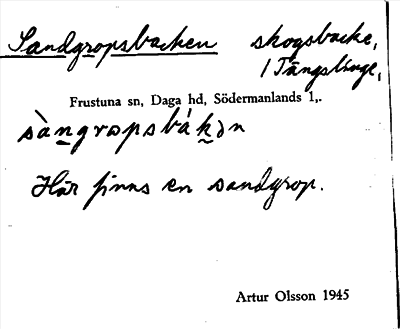 Sandgropsbacken skogsbacke,
/ Tängsborge,
Frustuna sn, Daga hd, Södermanlands l,.
sàngrɷpsbákən
Här finns en sandgrop.
Artur Olsson 1945